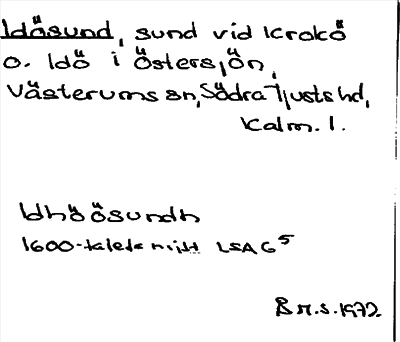 Idösund, sund vid Krokö
o. Idö i Östersjön,
Västerums sn, Södra Tjusts hd,
Kalm. l.
Idhöösundh
1600-talets mitt LSA G5
B M.S. 1972.